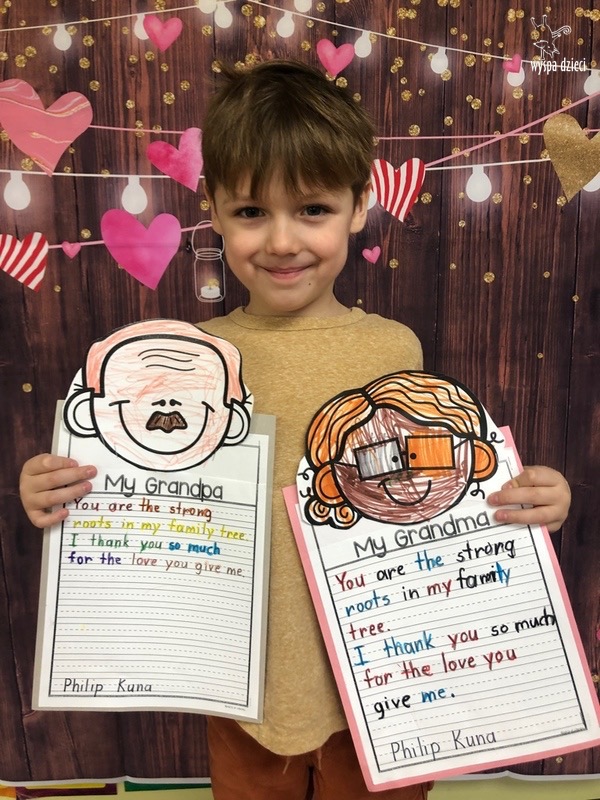 wyspa dzieci
My Grandpa
You are the strong
roots in my family tree.
I thank you so much
for the love you give me.
Philip Kuna
My Grandma
You are the strong
roots in my family
tree.
I thank you so much
for the love you
give me.
Philip Kuna